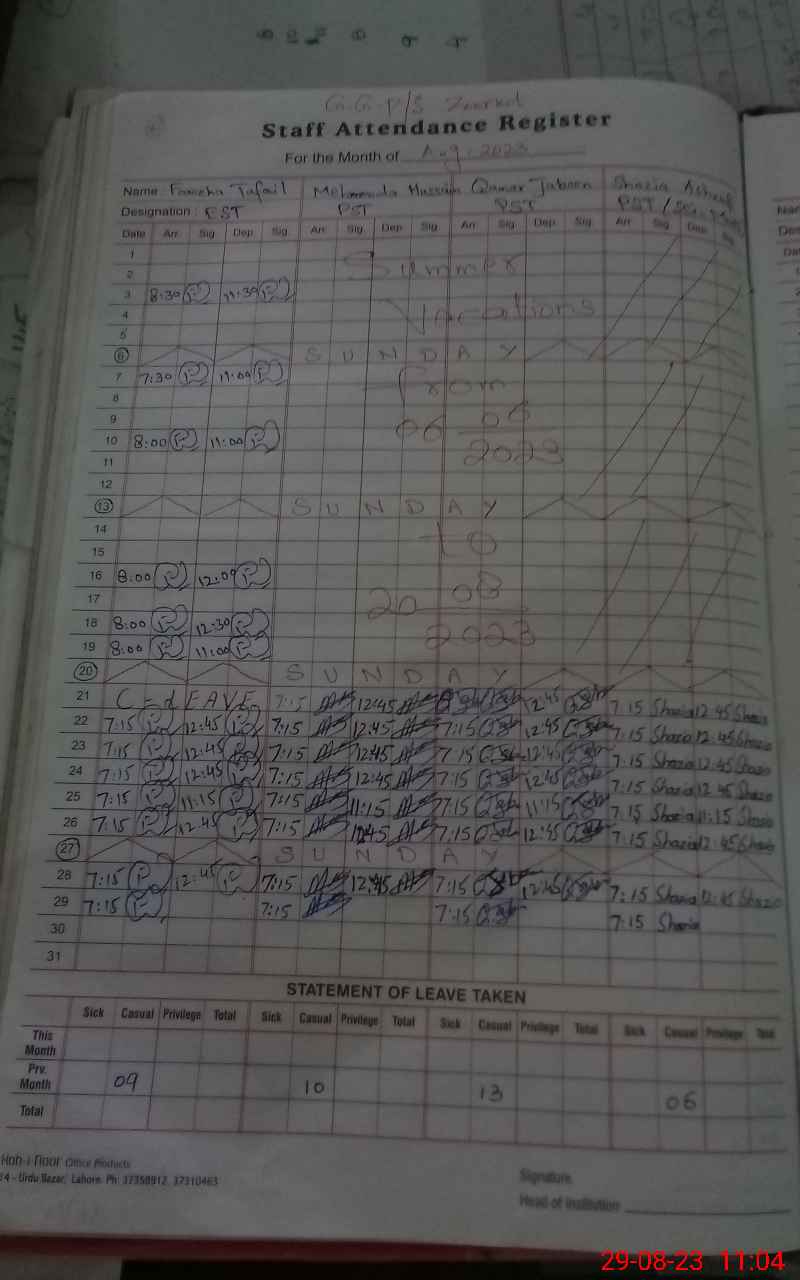 G.G.P/S
Staff Attendance Register
For the Month of Aug. 2023
Name : Tufail Hussain Qamar Jabeen Shazia Ashraf
Designation : EST PST PST PST /
Date Arr. Sig. Dep. Sig. Arr. Sig. Dep. Sig. Arr. Sig. Dep. Sig. Arr. Sig. Dep. Sig.
1
2 Summer
3 8:30 11:30
4 Vacations
5
6 SUNDAY
7 7:30 11:00 From
8
9 06
10 8:00 11:00 06
11 2023
12
13 SUNDAY
14
15 to
16 8:00 12:00
17 20 08
18 8:00 12:30 2023
19 8:00 11:00
20 SUNDAY
21 C-LEAVE 7:15 12:45 12:45 7:15 Shazia 12:45 Shazia
22 7:15 12:45 7:15 12:45 7:15 12:45 7:15 Shazia 12:45 Shazia
23 7:15 12:45 7:15 12:45 7:15 12:45 7:15 Shazia 12:45 Shazia
24 7:15 12:45 7:15 12:45 7:15 12:45 7:15 Shazia 12:45 Shazia
25 7:15 11:15 7:15 11:15 7:15 11:15 7:15 Shazia 11:15 Shazia
26 7:15 12:45 7:15 12:45 7:15 12:45 7:15 Shazia 12:45 Shazia
27 SUNDAY
28 7:15 12:45 7:15 12:45 7:15 12:45 7:15 Shazia 12:45 Shazia
29 7:15 7:15 7:15 7:15 Shazia
30
31
STATEMENT OF LEAVE TAKEN
Sick Casual Privilege Total Sick Casual Privilege Total Sick Casual Privilege Total Sick Casual Privilege Total
This Month
Prv. Month 09 10 13 06
Total
Koh-i-Noor Office Products
14 - Urdu Bazar, Lahore. Ph: 37358912, 37310463
Signature
Head of Institution
29-08-23 11:04